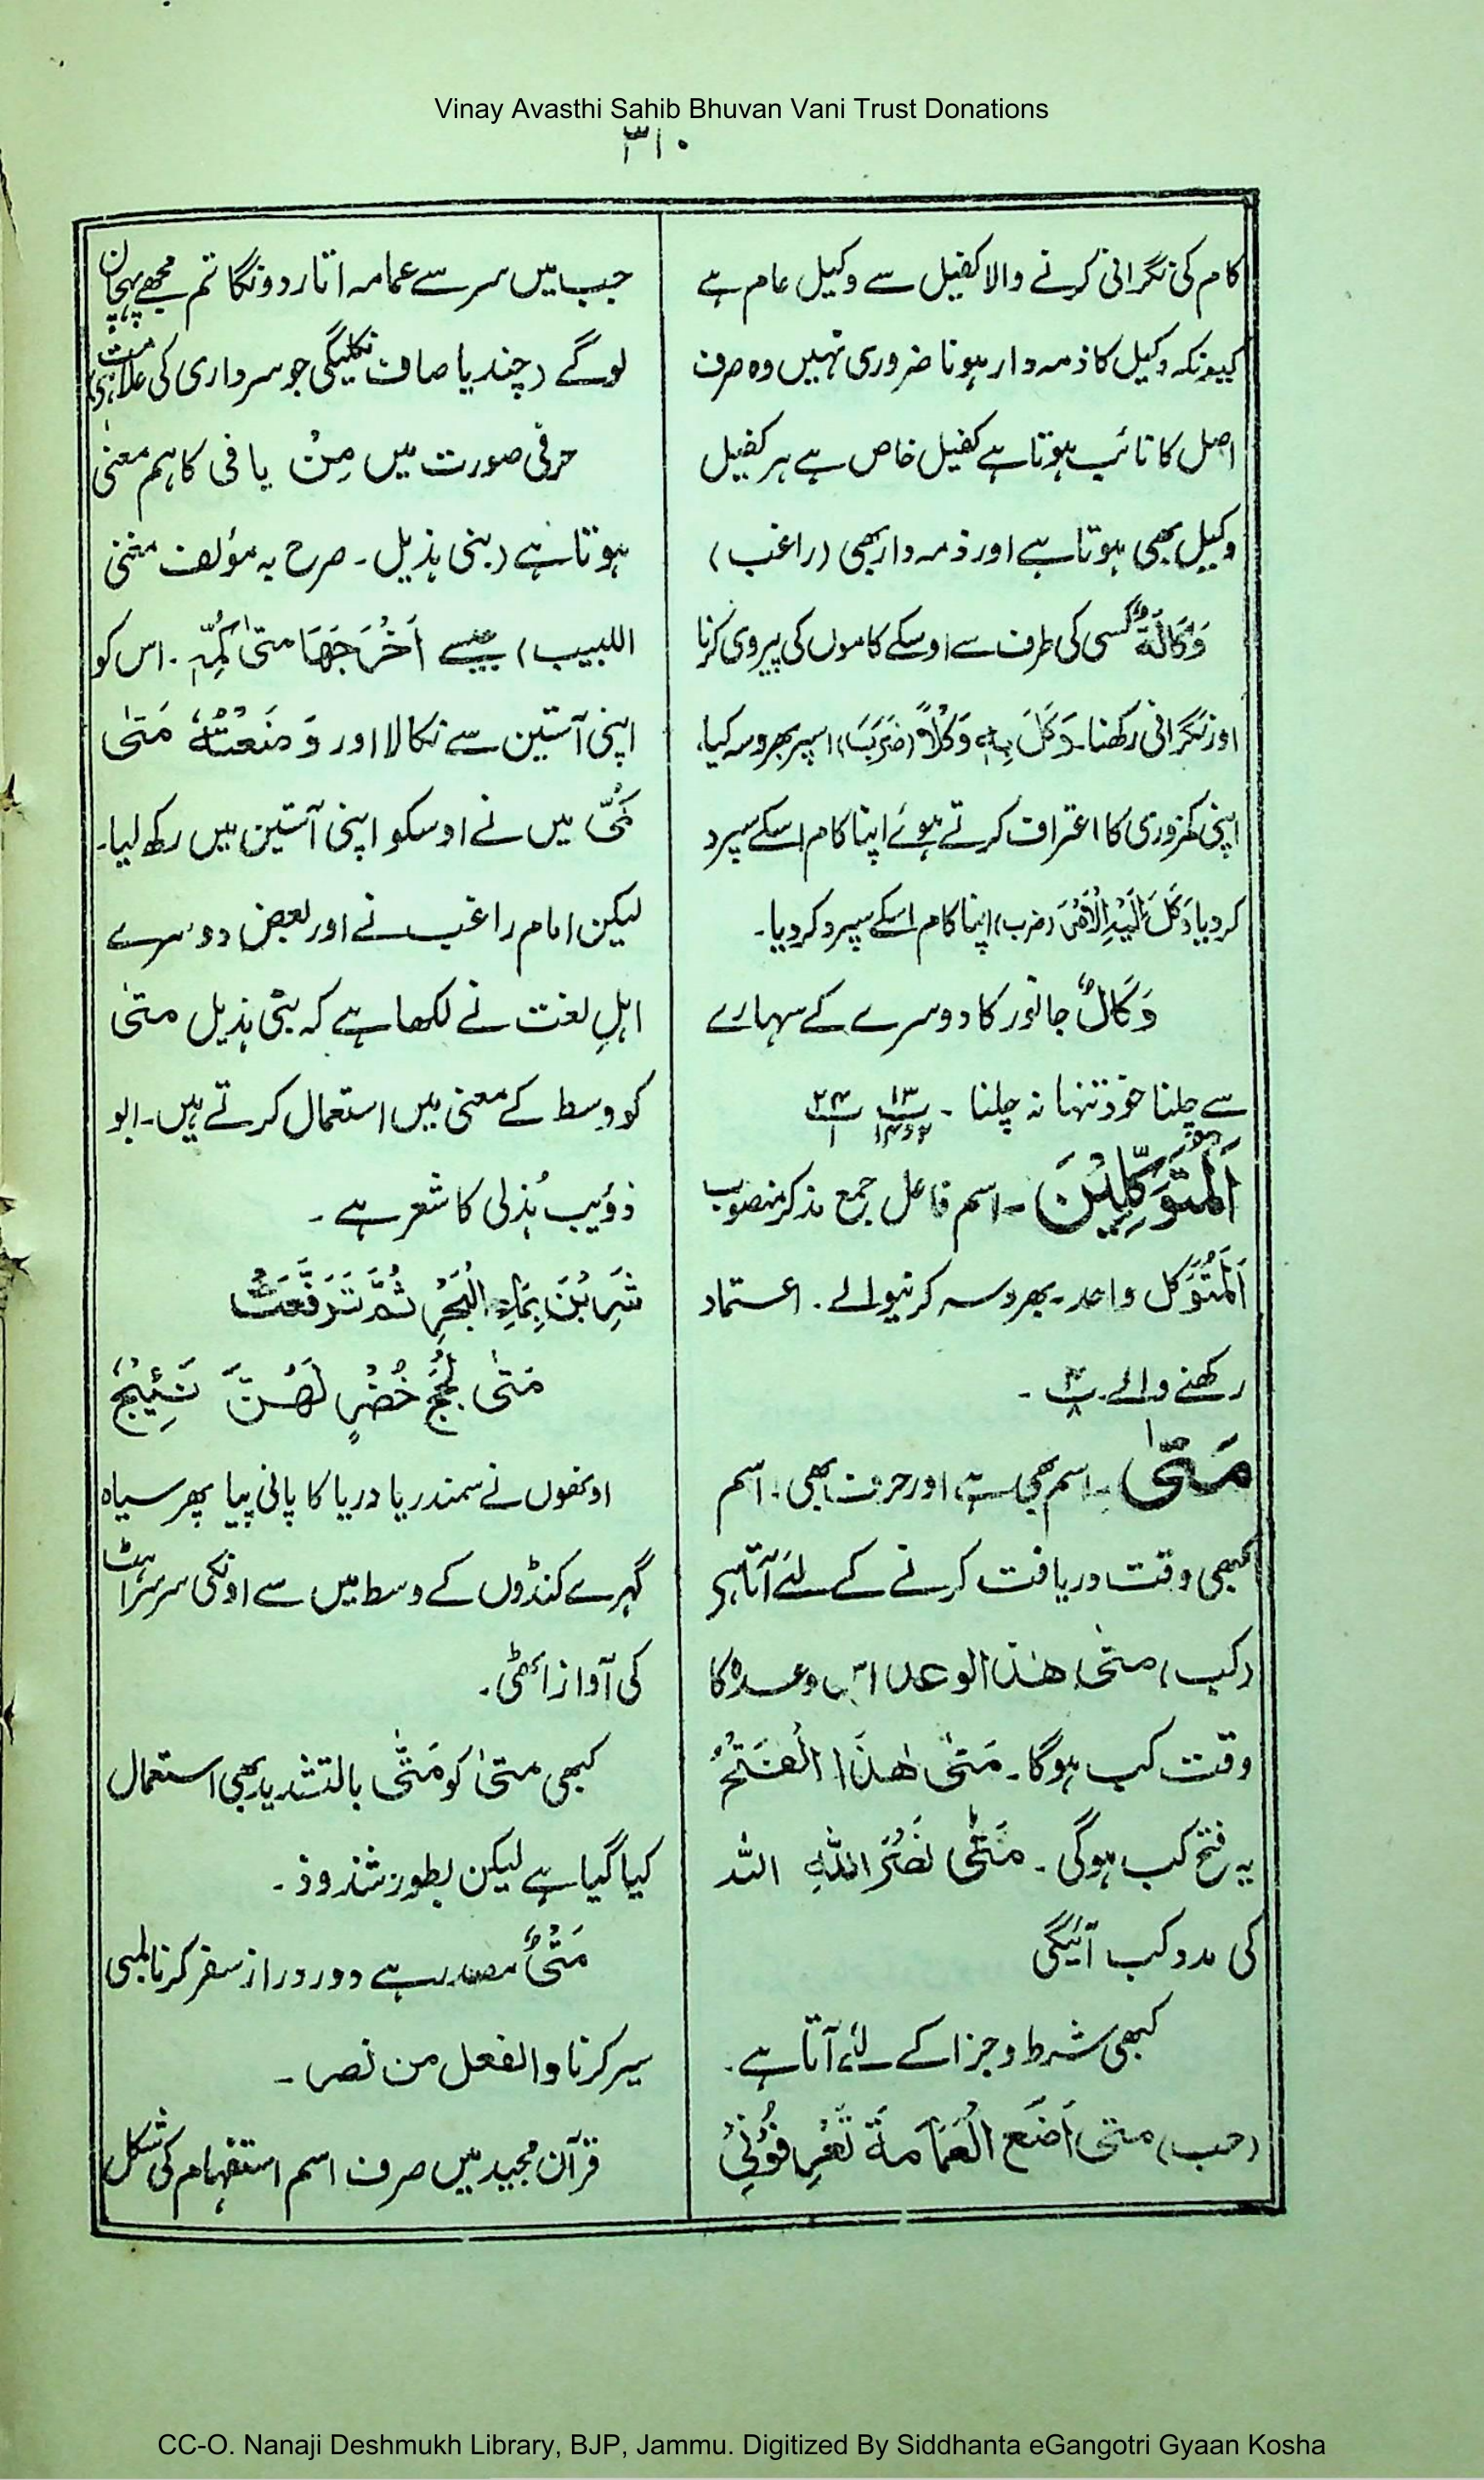 Vinay Avasthi Sahib Bhuvan Vani Trust Donations
۳۱۰
کام کی نگرانی کرنے والا کفیل سے وکیل عام ہے
کیونکہ وکیل کا ذمہ دار ہونا ضروری نہیں وہ صرف
اصل کا نائب ہوتا ہے کفیل خاص ہے ہر کفیل
وکیل بھی ہوتا ہے اور ذمہ دار بھی (راغب)
وَکَالَۃٌ کسی کی طرف سے اوسکے کاموں کی پیروی کرنا
اور نگرانی رکھنا۔ وَکَلَ بِہٖ وَکْلاً (ضَرَبَ) اسپر بھروسہ کیا،
اپنی کمزوری کا اعتراف کرتے ہوئے اپنا کام اسکے سپرد
کردیا وَکَلَ اِلَیْہِ الْاَمْرَ (ضرب) اپنا کام اسکے سپرد کردیا۔
وَکَالٌ جانور کا دوسرے کے سہارے
سے چلنا خود تنہا نہ چلنا ۔ ۱۳ ۲۴
اَلْمُتَوَکِّلِیْنَ ۔ اسم فاعل جمع مذکر منصوب
اَلْمُتَوَکل واحد۔ بھروسہ کرنیوالے ۔ اعتماد
رکھنے والے پ ۴ ۔
مَتٰی ۔ اسم بھی ہے اور حرف بھی ۔ اسم
کبھی وقت دریافت کرنے کے لئے آتا ہی
(کب) متٰی ھٰذا الوعد اس وعدہ کا
وقت کب ہوگا۔ مَتٰی ھٰذَا الْفَتْحُ
یہ فتح کب ہوگی ۔ مَتٰی نَصْرُ اللّٰہِ اللہ
کی مدد کب آئیگی
کبھی شرط و جزا کے لئے آتا ہے ۔
(جب) متی اَضَعِ الْعَمَامَۃَ تَعْرِفُوْنِیْ
جب میں سر سے عمامہ اتار دونگا تم مجھے پہچان
لوگے (چندیا صاف نکلیگی جو سرداری کی علامت ہی)
حرفی صورت میں مِنْ یا فی کا ہم معنی
ہوتا ہے (بنی ہذیل ۔ صرح بہ مؤلف مغنی
اللبیب) جیسے اَخْرَجَھَا متیٰ کُمِّہٖ ۔ اس کو
اپنی آستین سے نکالا اور وَضَعْتُہٗ مَتیٰ
کُمِّیْ میں نے اوسکو اپنی آستین میں رکھ لیا۔
لیکن امام راغب نے اور بعض دوسرے
اہلِ لغت نے لکھا ہے کہ بنی ہذیل متیٰ
کو وسط کے معنی میں استعمال کرتے ہیں۔ ابو
ذؤیب ہُذلی کا شعر ہے ۔
شَرِبْنَ بِمَاءِ الْبَحْرِ ثُمَّ تَرَفَّعَتْ
مَتٰی لُجَجٍ خُضْرٍ لَھُنَّ نَئِیْجُ
اونھوں نے سمندر یا دریا کا پانی پیا پھر سیاہ
گہرے کنڈوں کے وسط میں سے اونکی سرسراہٹ
کی آواز اٹھی ۔
کبھی متیٰ کو مَتّٰی بالتشدید بھی استعمال
کیا گیا ہے لیکن بطور شذوذ ۔
مَتْیٌ مصدر ہے دور دراز سفر کرنا لمبی
سیر کرنا والفعل من نصر ۔
قرآن مجید میں صرف اسم استفہام کی شکل
CC-O. Nanaji Deshmukh Library, BJP, Jammu. Digitized By Siddhanta eGangotri Gyaan Kosha